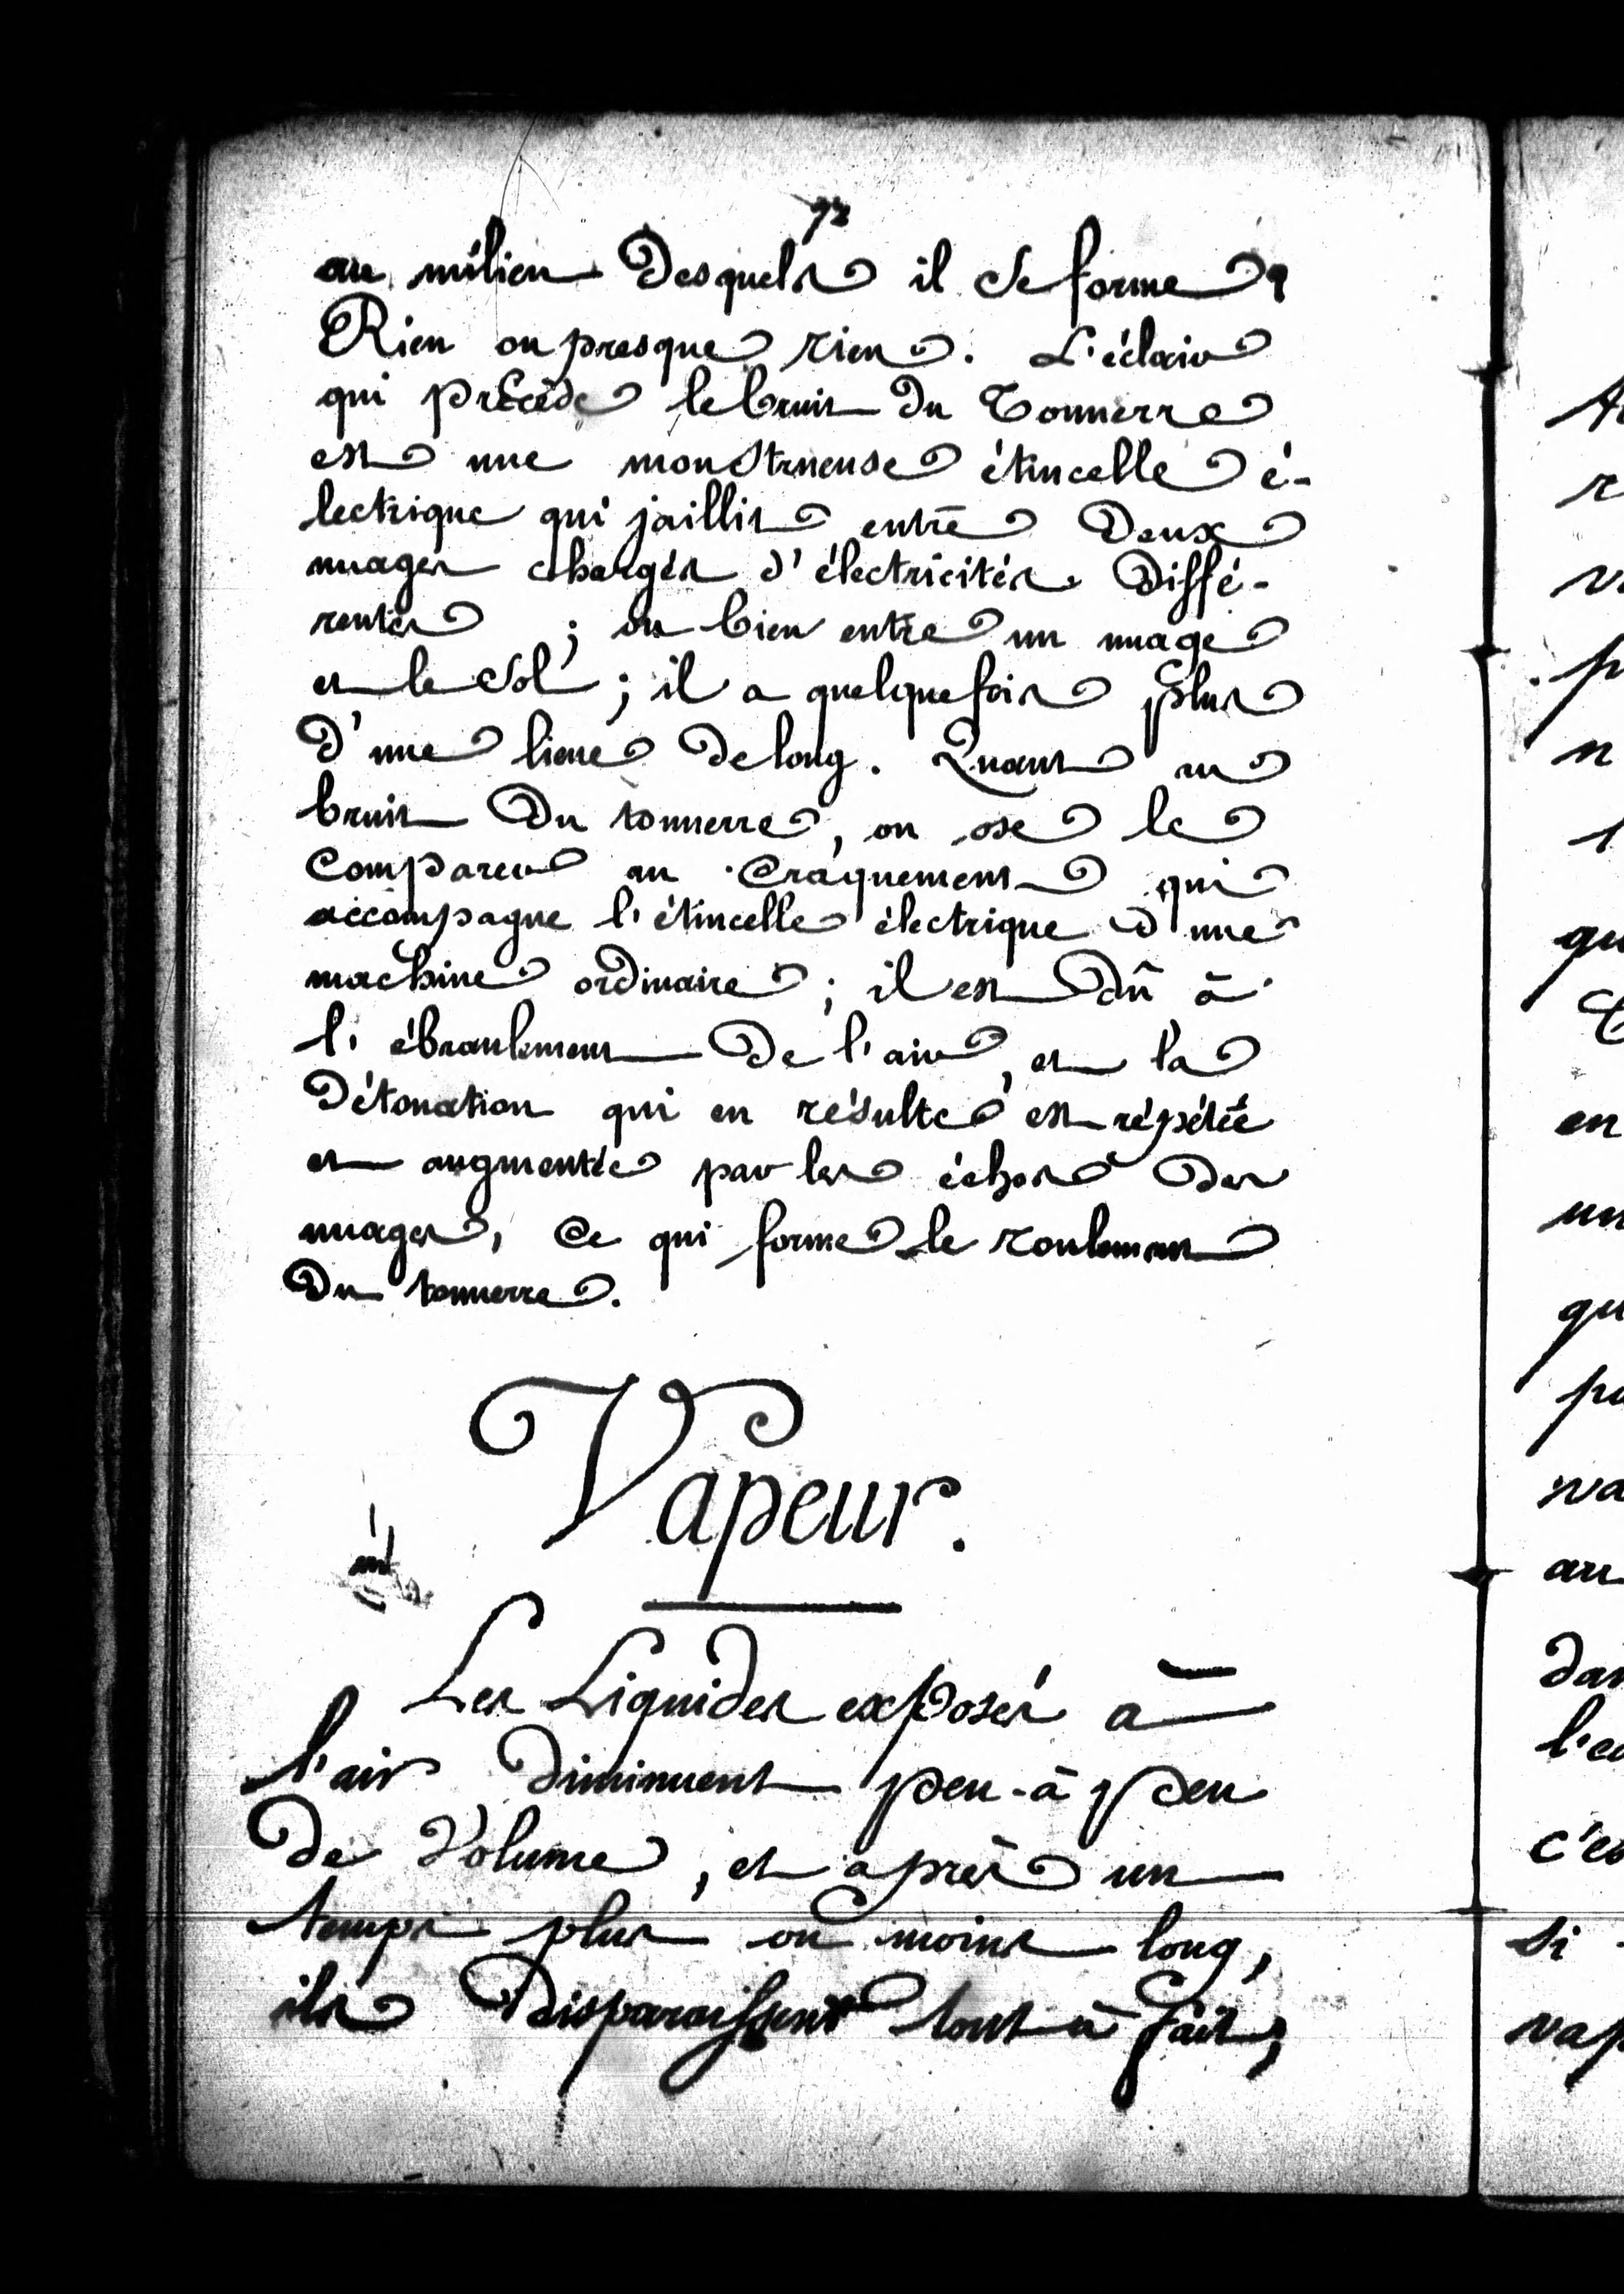 72
au milieu desquels il se forme ?
Rien ou presque rien. L'éclair
qui précède le bruit du Tonnerre
est une monstrueuse étincelle é-
lectrique qui jaillit entre deux
nuages chargés d'électricités diffé-
rentes ; ou bien entre un nuage
et le sol ; il a quelquefois plus
d'une lieue de long. Quant au
bruit du tonnerre, on ose le
comparer au craquement qui
accompagne l'étincelle électrique d'une
machine ordinaire ; il est dû à
l'ébranlement de l'air, et la
détonation qui en résulte est répétée
et augmentée par les échos des
nuages, ce qui forme le roulement
du tonnerre.
Vapeur.
Les Liquides exposés à
l'air diminuent peu-à peu
de Volume, et après un
temps plus ou moins long,
ils disparaissent tout à fait,